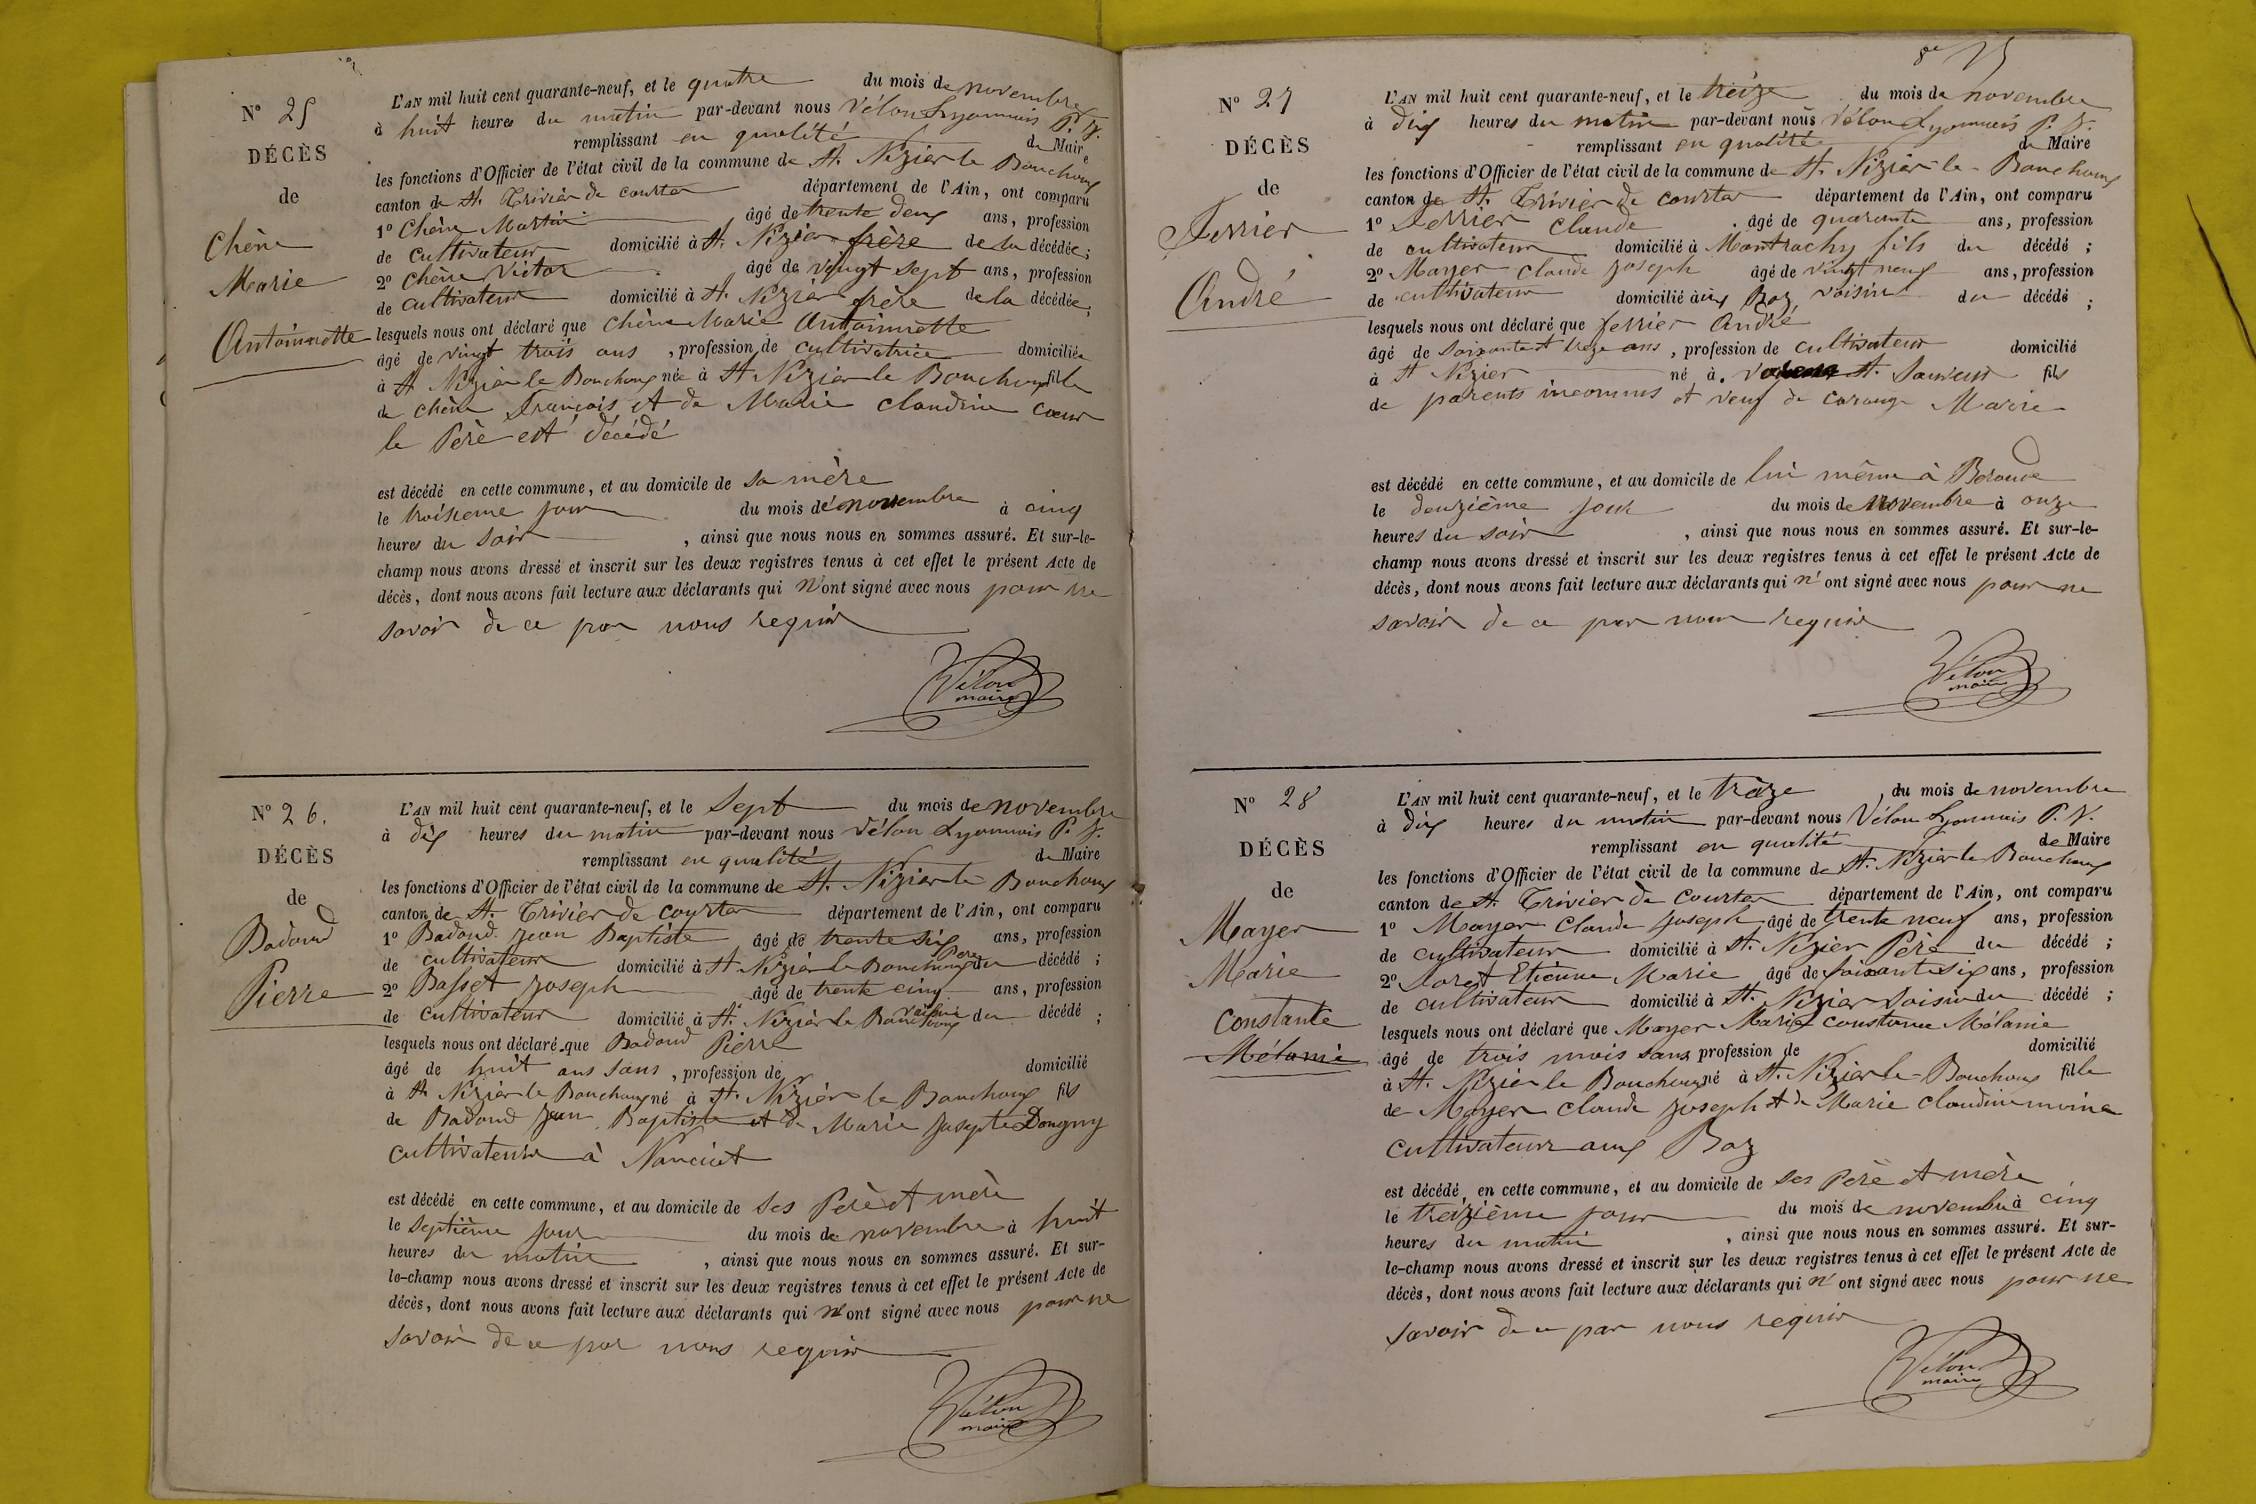 N° 25
DÉCÈS
de
Chêne
Marie
Antoinette
L'AN mil huit cent quarante-neuf, et le quatre du mois de novembre
à huit heures du matin par-devant nous Vélon Lyonnais P. V.
remplissant en qualité de Maire
les fonctions d'Officier de l'état civil de la commune de St. Nizier le Bouchoux
canton de St. Trivier de courtes département de l'Ain, ont comparu
1° Chêne Martin âgé de trente deux ans, profession
de cultivateur domicilié à St. Nizier frère de la décédée;
2° Chêne Victor âgé de vingt sept ans, profession
de cultivateur domicilié à St. Nizier frère de la décédée;
lesquels nous ont déclaré que Chêne Marie Antoinette
âgé de vingt trois ans, profession de cultivatrice domiciliée
à St Nizier le Bouchoux née à St Nizier le Bouchoux fille
de Chêne François et de Marie Claudine Coeur
le Père est décédé
est décédé en cette commune, et au domicile de sa mère
le troisieme jour du mois de novembre à cinq
heures du soir, ainsi que nous nous en sommes assuré. Et sur-le-
champ nous avons dressé et inscrit sur les deux registres tenus à cet effet le présent Acte de
décès, dont nous avons fait lecture aux déclarants qui n'ont signé avec nous pour ne
savoir de ce par nous requis
Vélon
maire
N° 26.
DÉCÈS
de
Badoud
Pierre
L'AN mil huit cent quarante-neuf, et le Sept du mois de novembre
à dix heures du matin par-devant nous Vélon Lyonnais P. V.
remplissant en qualité de Maire
les fonctions d'Officier de l'état civil de la commune de St. Nizier le Bouchoux
canton de St. Trivier de courtes département de l'Ain, ont comparu
1° Badoud Jean Baptiste âgé de trente six ans, profession
de cultivateur domicilié à St Nizier le Bouchoux Père du décédé;
2° Basset Joseph âgé de trente cinq ans, profession
de cultivateur domicilié à St. Nizier le Bouchoux voisin du décédé;
lesquels nous ont déclaré que Badoud Pierre
âgé de huit ans sans, profession de domicilié
à St Nizier le Bouchoux né à St. Nizier le Bouchoux fils
de Badoud Jean Baptiste et de Marie Josepte Dongny
cultivateurs à
est décédé en cette commune, et au domicile de ses Père et mère
le septième jour du mois de novembre à huit
heures du matin, ainsi que nous nous en sommes assuré. Et sur-
le-champ nous avons dressé et inscrit sur les deux registres tenus à cet effet le présent Acte de
décès, dont nous avons fait lecture aux déclarants qui n'ont signé avec nous pour ne
savoir de ce par nous requis
Vélon
maire
N° 27
DÉCÈS
de
Ferrier
André
L'AN mil huit cent quarante-neuf, et le treize du mois de novembre
à dix heures du matin par-devant nous Vélon Lyonnais P. V.
remplissant en qualité de Maire
les fonctions d'Officier de l'état civil de la commune de St. Nizier le Bouchoux
canton de St. Trivier de courtes département de l'Ain, ont comparu
1° Ferrier Claude âgé de quarante ans, profession
de cultivateur domicilié à Montrachy fils du décédé;
2° Mayer Claude Joseph âgé de vingt neuf ans, profession
de cultivateur domicilié aux Boz voisin du décédé;
lesquels nous ont déclaré que ferrier André
âgé de soixante et treze ans, profession de cultivateur domicilié
à St Nizier né à St. Sauveur fils
de parents inconnus et veuf de Marie
est décédé en cette commune, et au domicile de lui même à
le douzième jour du mois de novembre à onze
heures du soir, ainsi que nous nous en sommes assuré. Et sur-le-
champ nous avons dressé et inscrit sur les deux registres tenus à cet effet le présent Acte de
décès, dont nous avons fait lecture aux déclarants qui n'ont signé avec nous pour ne
savoir de ce par nous requis
Vélon
maire
N° 28
DÉCÈS
de
Mayer
Marie
Constante
Mélanie
L'AN mil huit cent quarante-neuf, et le treize du mois de novembre
à dix heures du matin par-devant nous Vélon Lyonnais P. V.
remplissant en qualité de Maire
les fonctions d'Officier de l'état civil de la commune de St. Nizier le Bouchoux
canton de St. Trivier de courtes département de l'Ain, ont comparu
1° Mayer Claude Joseph âgé de trente neuf ans, profession
de cultivateur domicilié à St. Nizier Père du décédé;
2° Loret Etienne Marie âgé de soixante six ans, profession
de cultivateur domicilié à St. Nizier Voisin du décédé;
lesquels nous ont déclaré que Mayer Marie constance Mélanie
âgé de trois mois sans profession de domicilié
à St. Nizier le Bouchoux né à St. Nizier le Bouchoux fille
de Mayer Claude Joseph et de Marie Claudine moine
cultivateurs aux Boz
est décédé en cette commune, et au domicile de ses Père et mère
le treizième jour du mois de novembre à cinq
heures du matin, ainsi que nous nous en sommes assuré. Et sur-
le-champ nous avons dressé et inscrit sur les deux registres tenus à cet effet le présent Acte de
décès, dont nous avons fait lecture aux déclarants qui n'ont signé avec nous pour ne
savoir de ce par nous requis
Vélon
maire